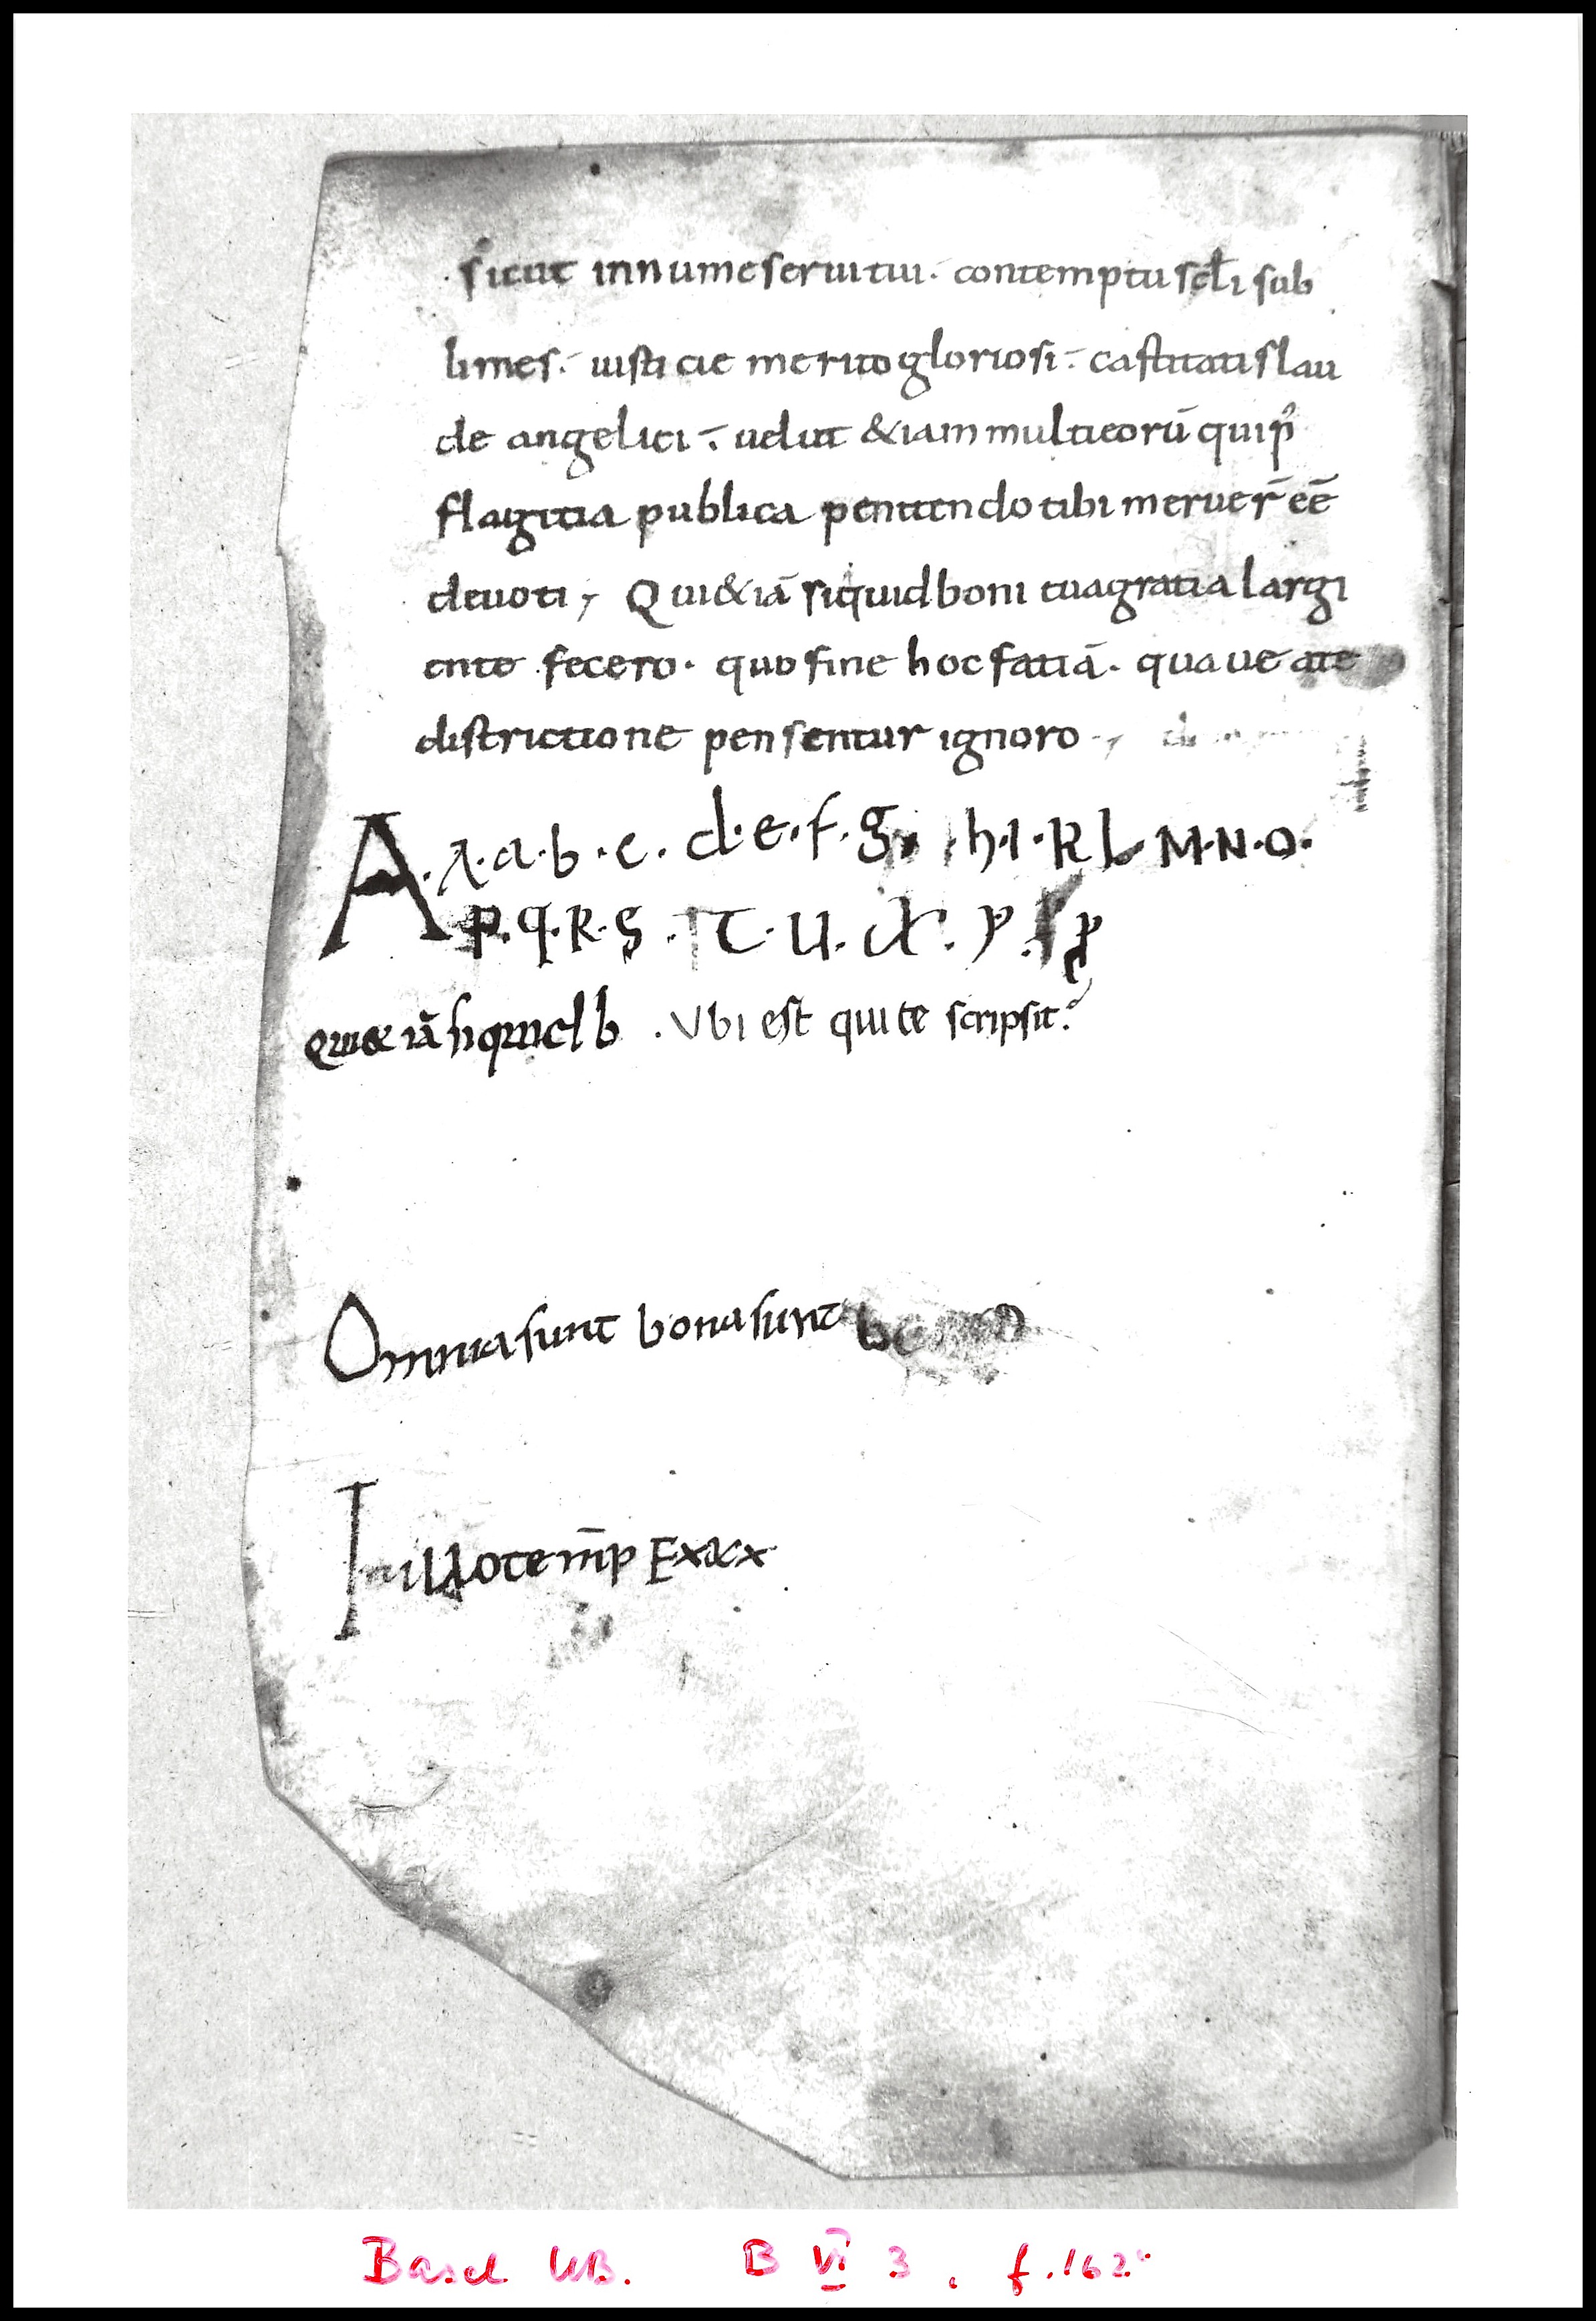 sicut innumeseruitui. contemptu scłi sub
limes. iusticie merito gloriosi. castitatis lau
de angelici. uelut &iam multi eorū qui p̛
flagitia publica penitendo tibi meruer̄ eē
deuoti, Qui&iā siquid boni tua gratia largi
ente fecero. quo fine hoc fatiā. qua ue a te
districtione pensentur ignoro,
A. a. a. b. c. d. e. f. g. h. I. K L M. N. O.
P. q. R. S. T. U. X. y.
Qui& iā siquid b . Vbi est qui te scripsit?
Omnia sunt bona sunt
In illo tem̄p Exxx
Basel UB. B VI 3, f. 162v